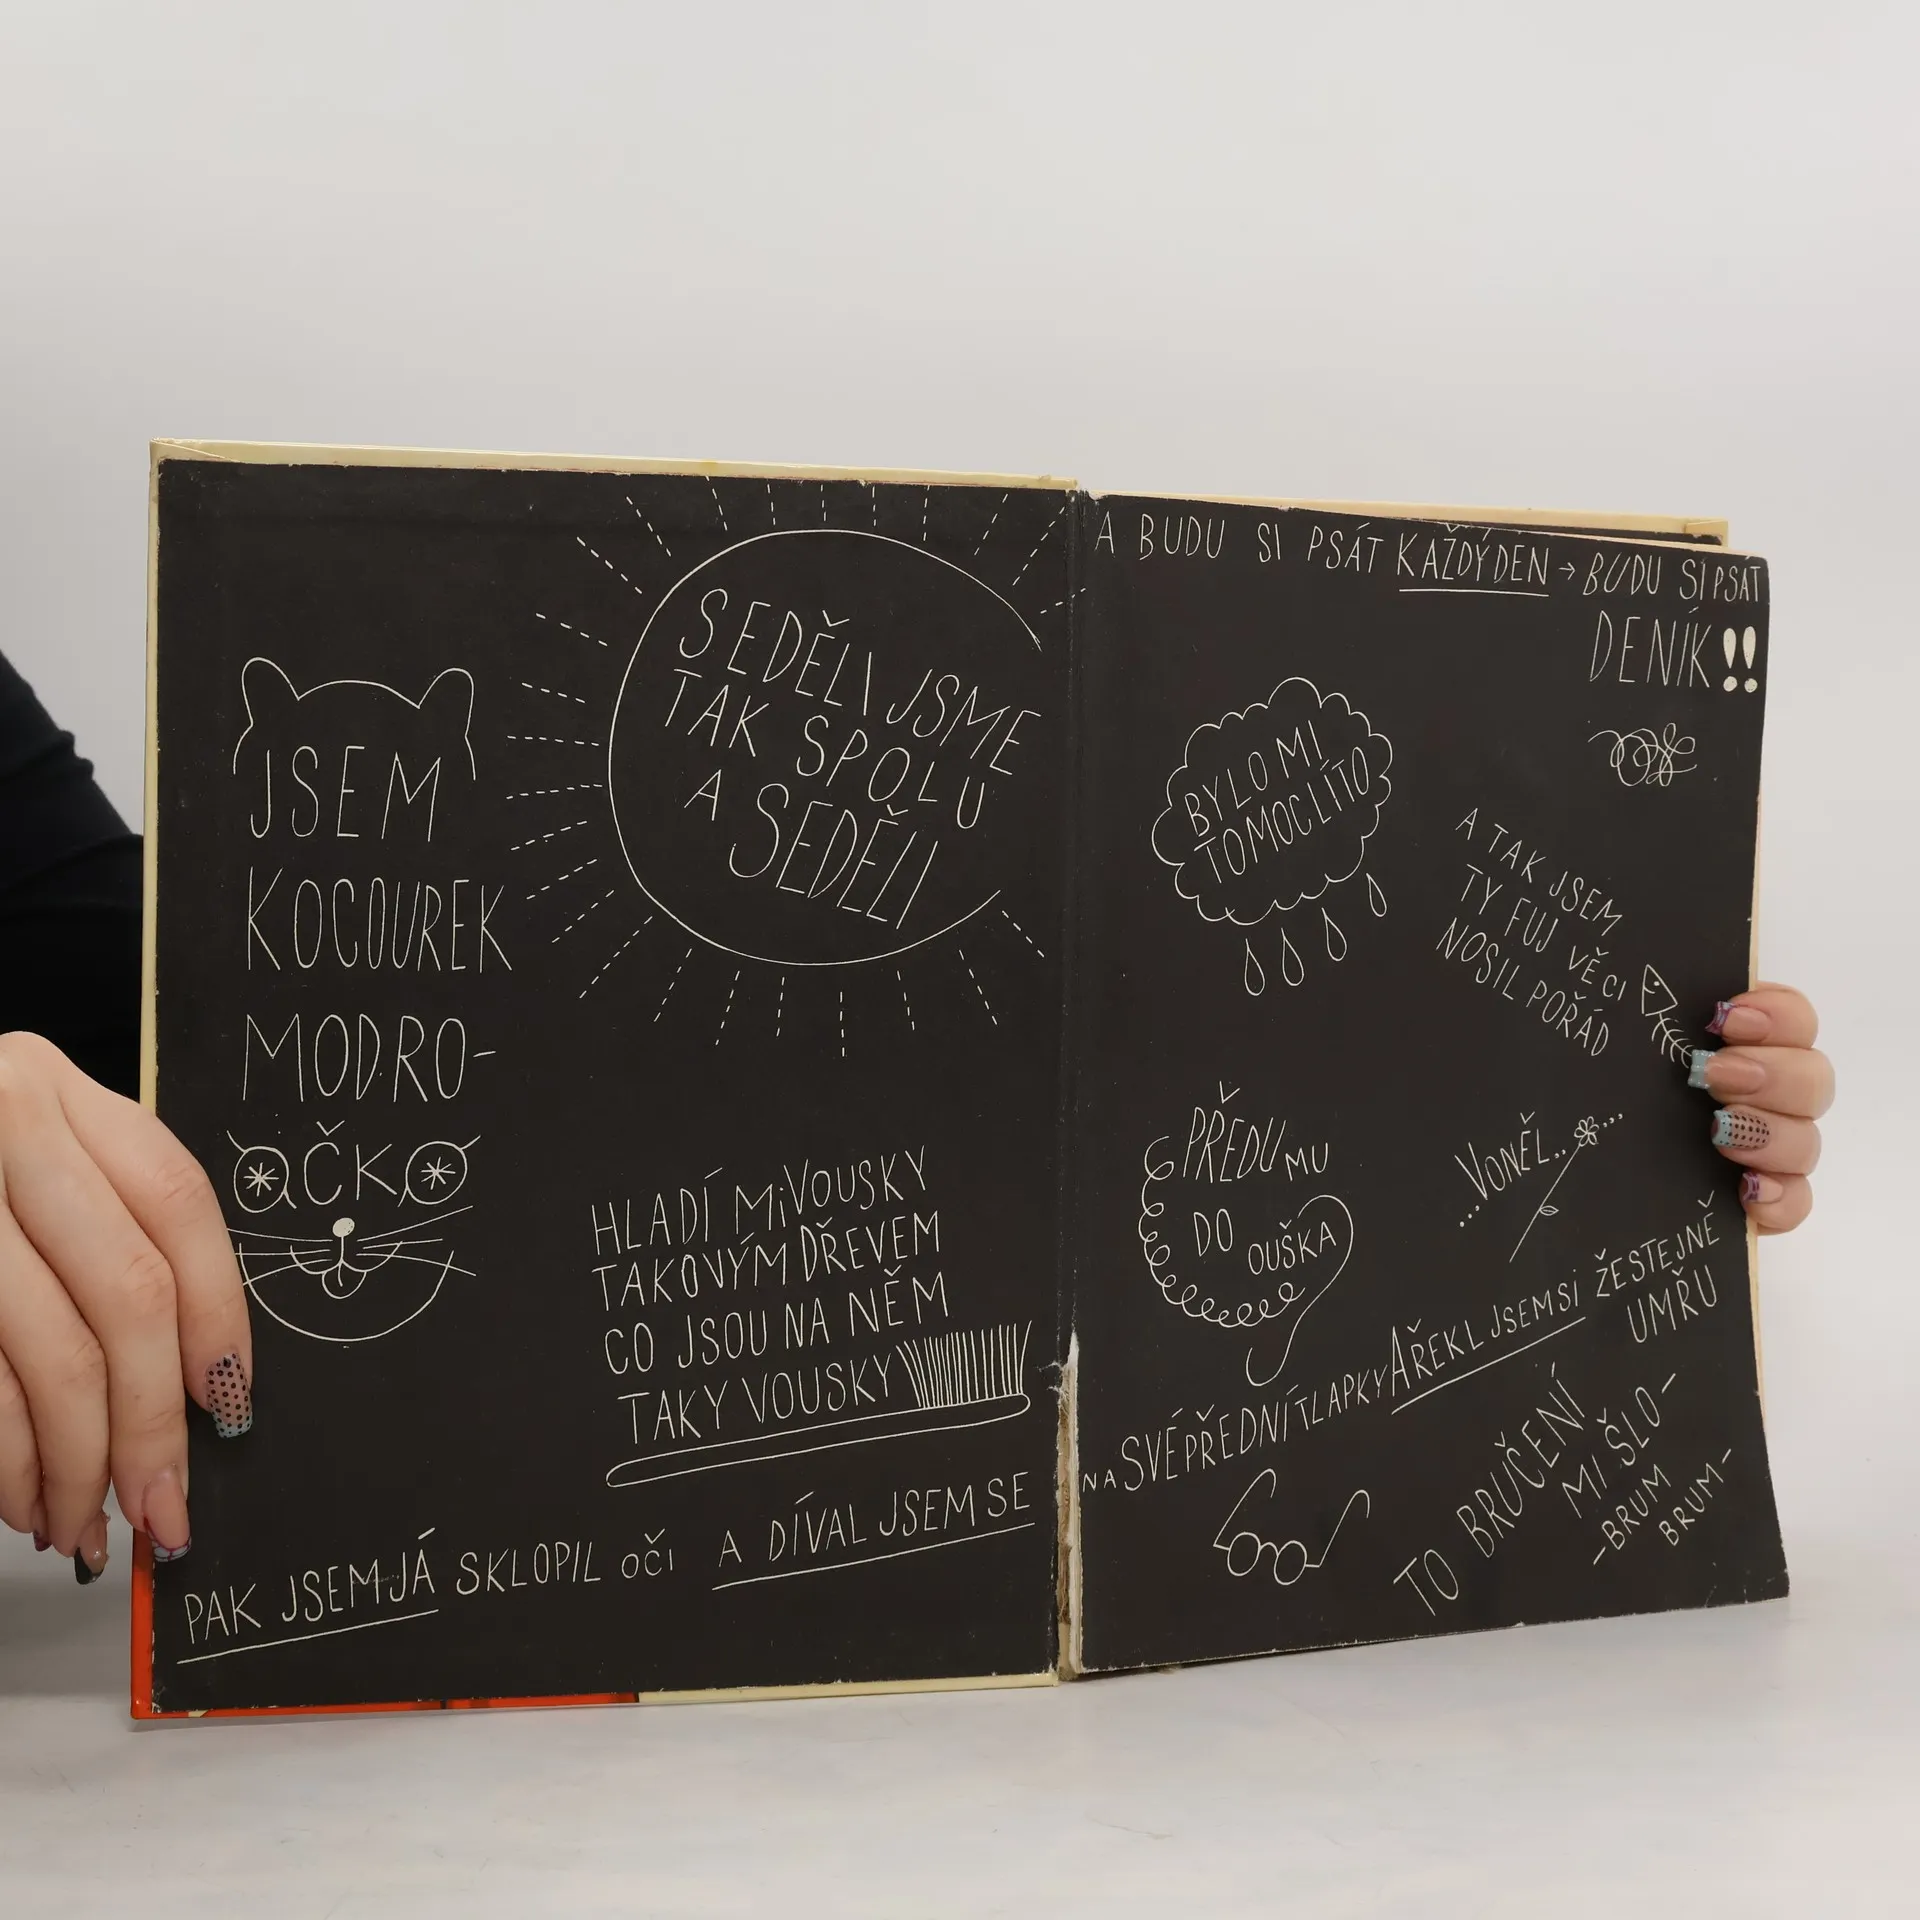 JSEM
KOCOUREK
MODRO-
OČKO
SEDĚLI JSME
TAK SPOLU
A SEDĚLI
HLADÍ MiVOUSKY
TAKOVÝM DŘEVEM
CO JSOU NA NĚM
TAKY VOUSKY
PAK JSEM JÁ SKLOPIL OČI A DÍVAL JSEM SE
A BUDU SI PSÁT KAŽDÝ DEN → BUDU SI PSAT
DENÍK!!
BYLO MI
TOMOC LÍTO
A TAK JSEM
TY FUJ VĚCI
NOSIL POŘÁD
PŘEDU MU
DO OUŠKA
VONĚL..
NA SVÉ PŘEDNÍ TLAPKY A ŘEKL JSEM SI ŽE STEJNĚ
UMŘU
TO BRUČENÍ
MI ŠLO-
-BRUM
BRUM-